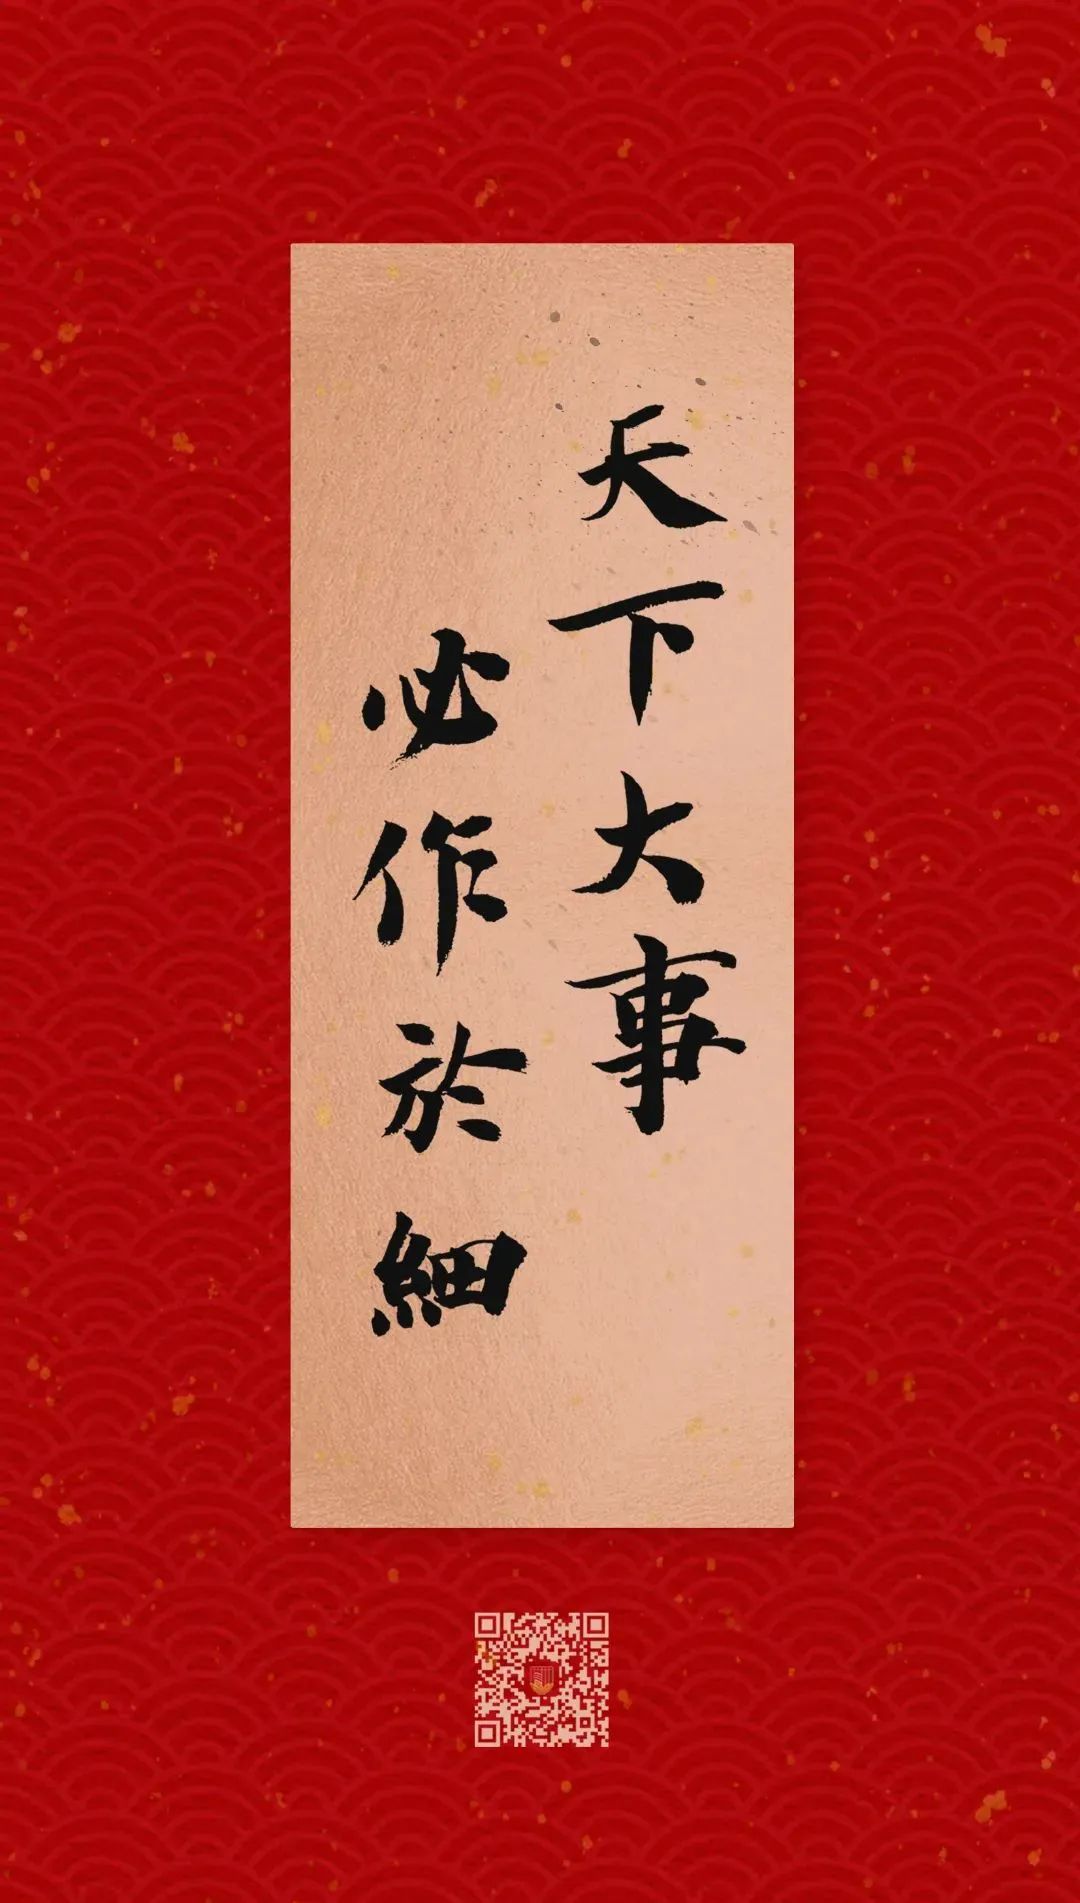 天下大事
必作於細